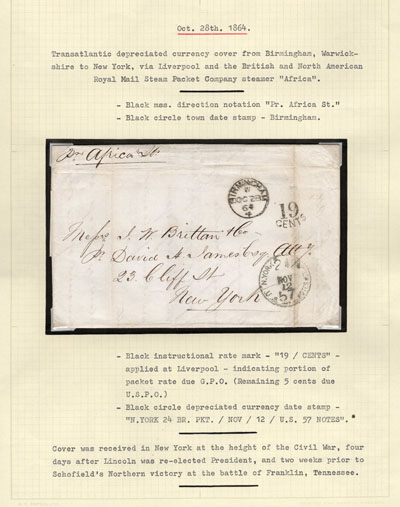 Oct. 28th. 1864.
Transatlantic depreciated currency cover from Birmingham, Warwick-
shire to New York, via Liverpool and the British and North American
Royal Mail Steam Packet Company steamer "Africa".
- Black mss. direction notation "Pr. Africa St."
- Black circle town date stamp - Birmingham.
Pr. Africa St
BIRMINGHAM
OC 28
64
4
19
CENTS
Messrs J. W. Brittan & Co
Pr. David A. James Esq. Atty.
23. Cliff St
New York
24
NOV
12
57
- Black instructional rate mark - "19 / CENTS" -
applied at Liverpool - indicating portion of
packet rate due G.P.O. (Remaining 5 cents due
U.S.P.O.)
- Black circle depreciated currency date stamp -
"N.YORK 24 BR. PKT. / NOV / 12 / U.S. 57 NOTES".
Cover was received in New York at the height of the Civil War, four
days after Lincoln was re-elected President, and two weeks prior to
Schofield's Northern victory at the battle of Franklin, Tennessee.